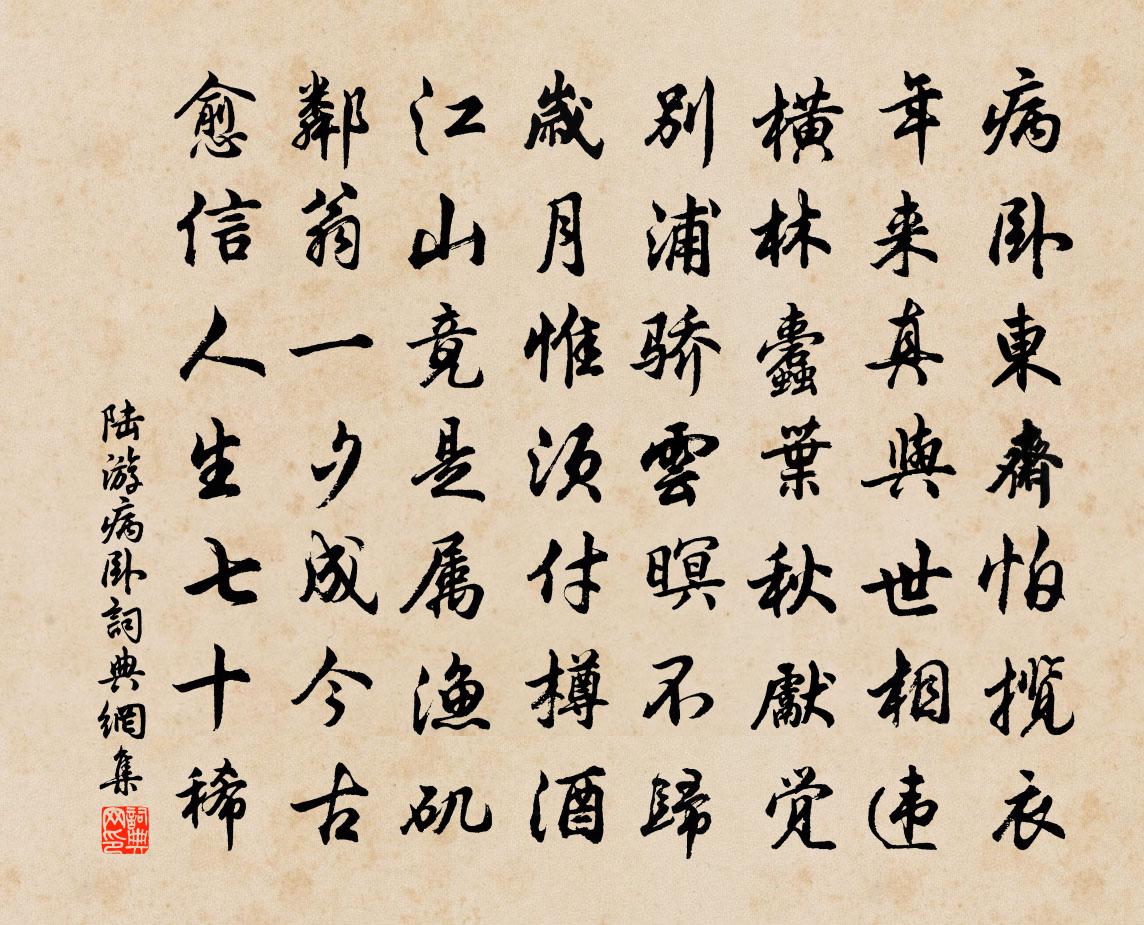 病卧東齋怕揽衣
年来真與世相違
橫林蠹葉秋獻觉
别浦骄雲暝不歸
歲月惟須付樽酒
江山竟是属漁矶
鄰翁一夕成今古
愈信人生七十稀
陆游病卧詞典網集
詞典网印